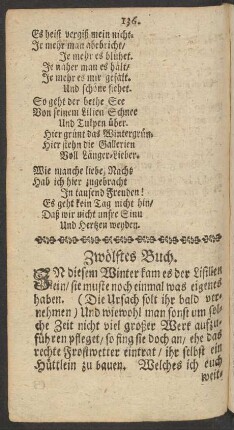 136.
Es heist vergiß mein nicht.
Je mehr man abebricht/
Je mehr es blühet.
Je näher man es hält/
Je mehr es mir gefält.
Und schöne siehet.
So geht der bethe See
Von seinem Lilien Schnee
Und Tulpen über.
Hier grünt das Wintergrün.
Hier stehn die Gallerien
Voll Länger-Lieber.
Wie manche liebe Nacht
Hab ich hier zugebracht
In tausend Freuden!
Es geht kein Tag nicht hin/
Daß wir nicht unsre Sinn
Und Hertzen weyden.
Zwölftes Buch.
IN diesem Winter kam es der Lisilien
ein/ sie muste noch einmal was eigenes
haben. (Die Ursach solt ihr bald ver-
nehmen) Und wiewohl man sonst um sol-
che Zeit nicht viel großer Werk aufzu-
führen pfleget/ so fing sie doch an/ ehe das
rechte Frostwetter eintrat/ ihr selbst ein
Hüttlein zu bauen. Welches ich euch
weite